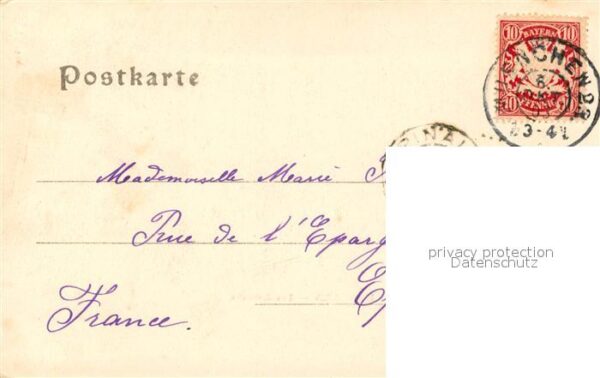 Postkarte
10 BAYERN 10
MUENCHEN
3-4
10 PFENNIG 10
Mademoiselle Marie
Rue de l'Eparg
privacy protection
Datenschutz
Ep
France.